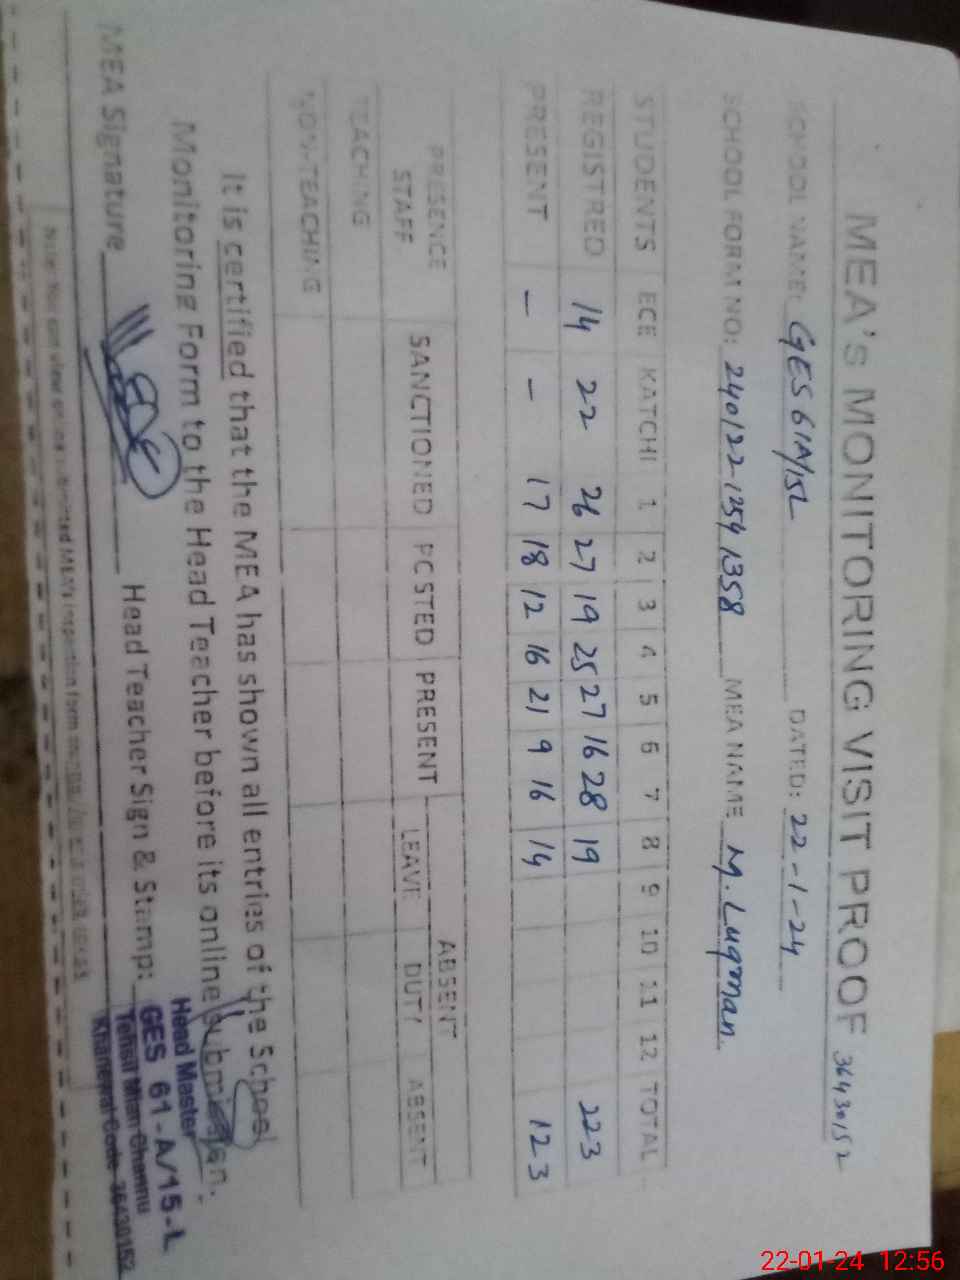 MEA's MONITORING VISIT PROOF 36430152
SCHOOL NAME: GES 61A/15L DATED: 22-1-24
SCHOOL FORM NO: 240122-1254 1358 MEA NAME M. Luqman
STUDENTS ECE KATCHI 1 2 3 4 5 6 7 8 9 10 11 12 TOTAL
REGISTRED 14 22 26 27 19 25 27 16 28 19 223
PRESENT - - 17 18 12 16 21 9 16 14 123
PRESENCE SANCTIONED POSTED PRESENT ABSENT
STAFF LEAVE DUTY ABSENT
TEACHING
NON-TEACHING
It is certified that the MEA has shown all entries of the School
Monitoring Form to the Head Teacher before its online submission.
MEA Signature Head Teacher Sign & Stamp:
Head Master
GES 61-A/15-L
Tehsil Mian Channu
Khanewal Code 36430152
22-01-24 12:56